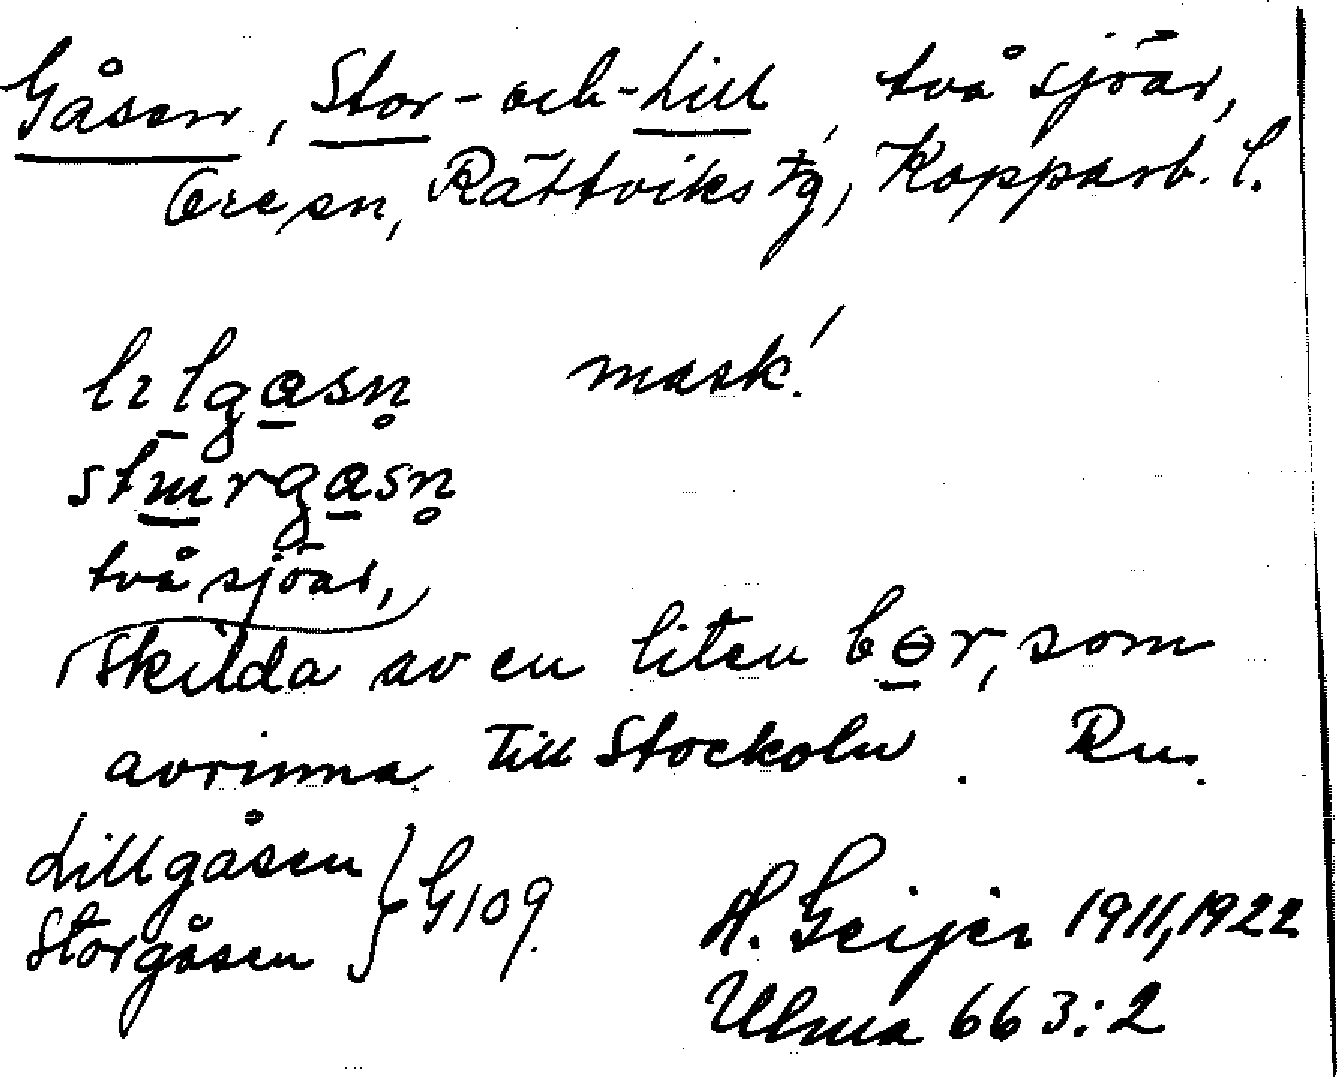 Gåsen, Stor- och -Lill, två sjöar,
Ore sn, Rättviks tg, Kopparb. l.
lılgasn̥ mask!
stɯrgasn̥
två sjöar,
skilda av en liten bɵr, som
avrinna till Stockolm. Ru.
Lillgåsen
Storgåsen } G109.
H. Geijer 1911, 1922
Ulma 663:2